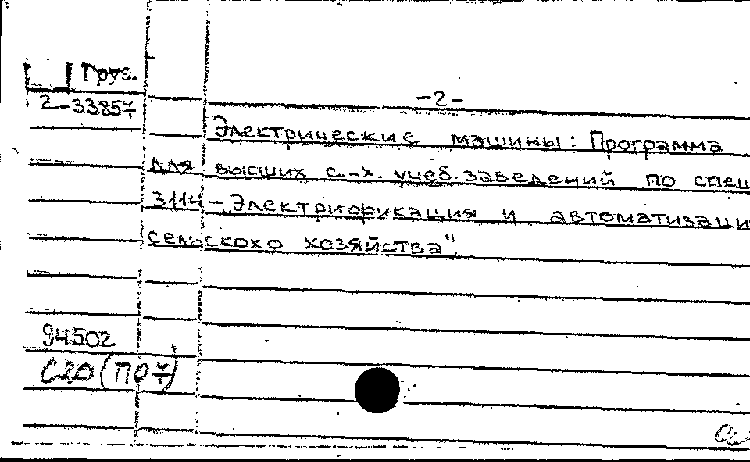 Груз.
2-33857
-2-
Электрические машины: Программа
для высших с.-х. учеб. заведений по спец
3114 - Электрификация и автоматизаци
сельского хозяйства"
94502
С20(ПО7)